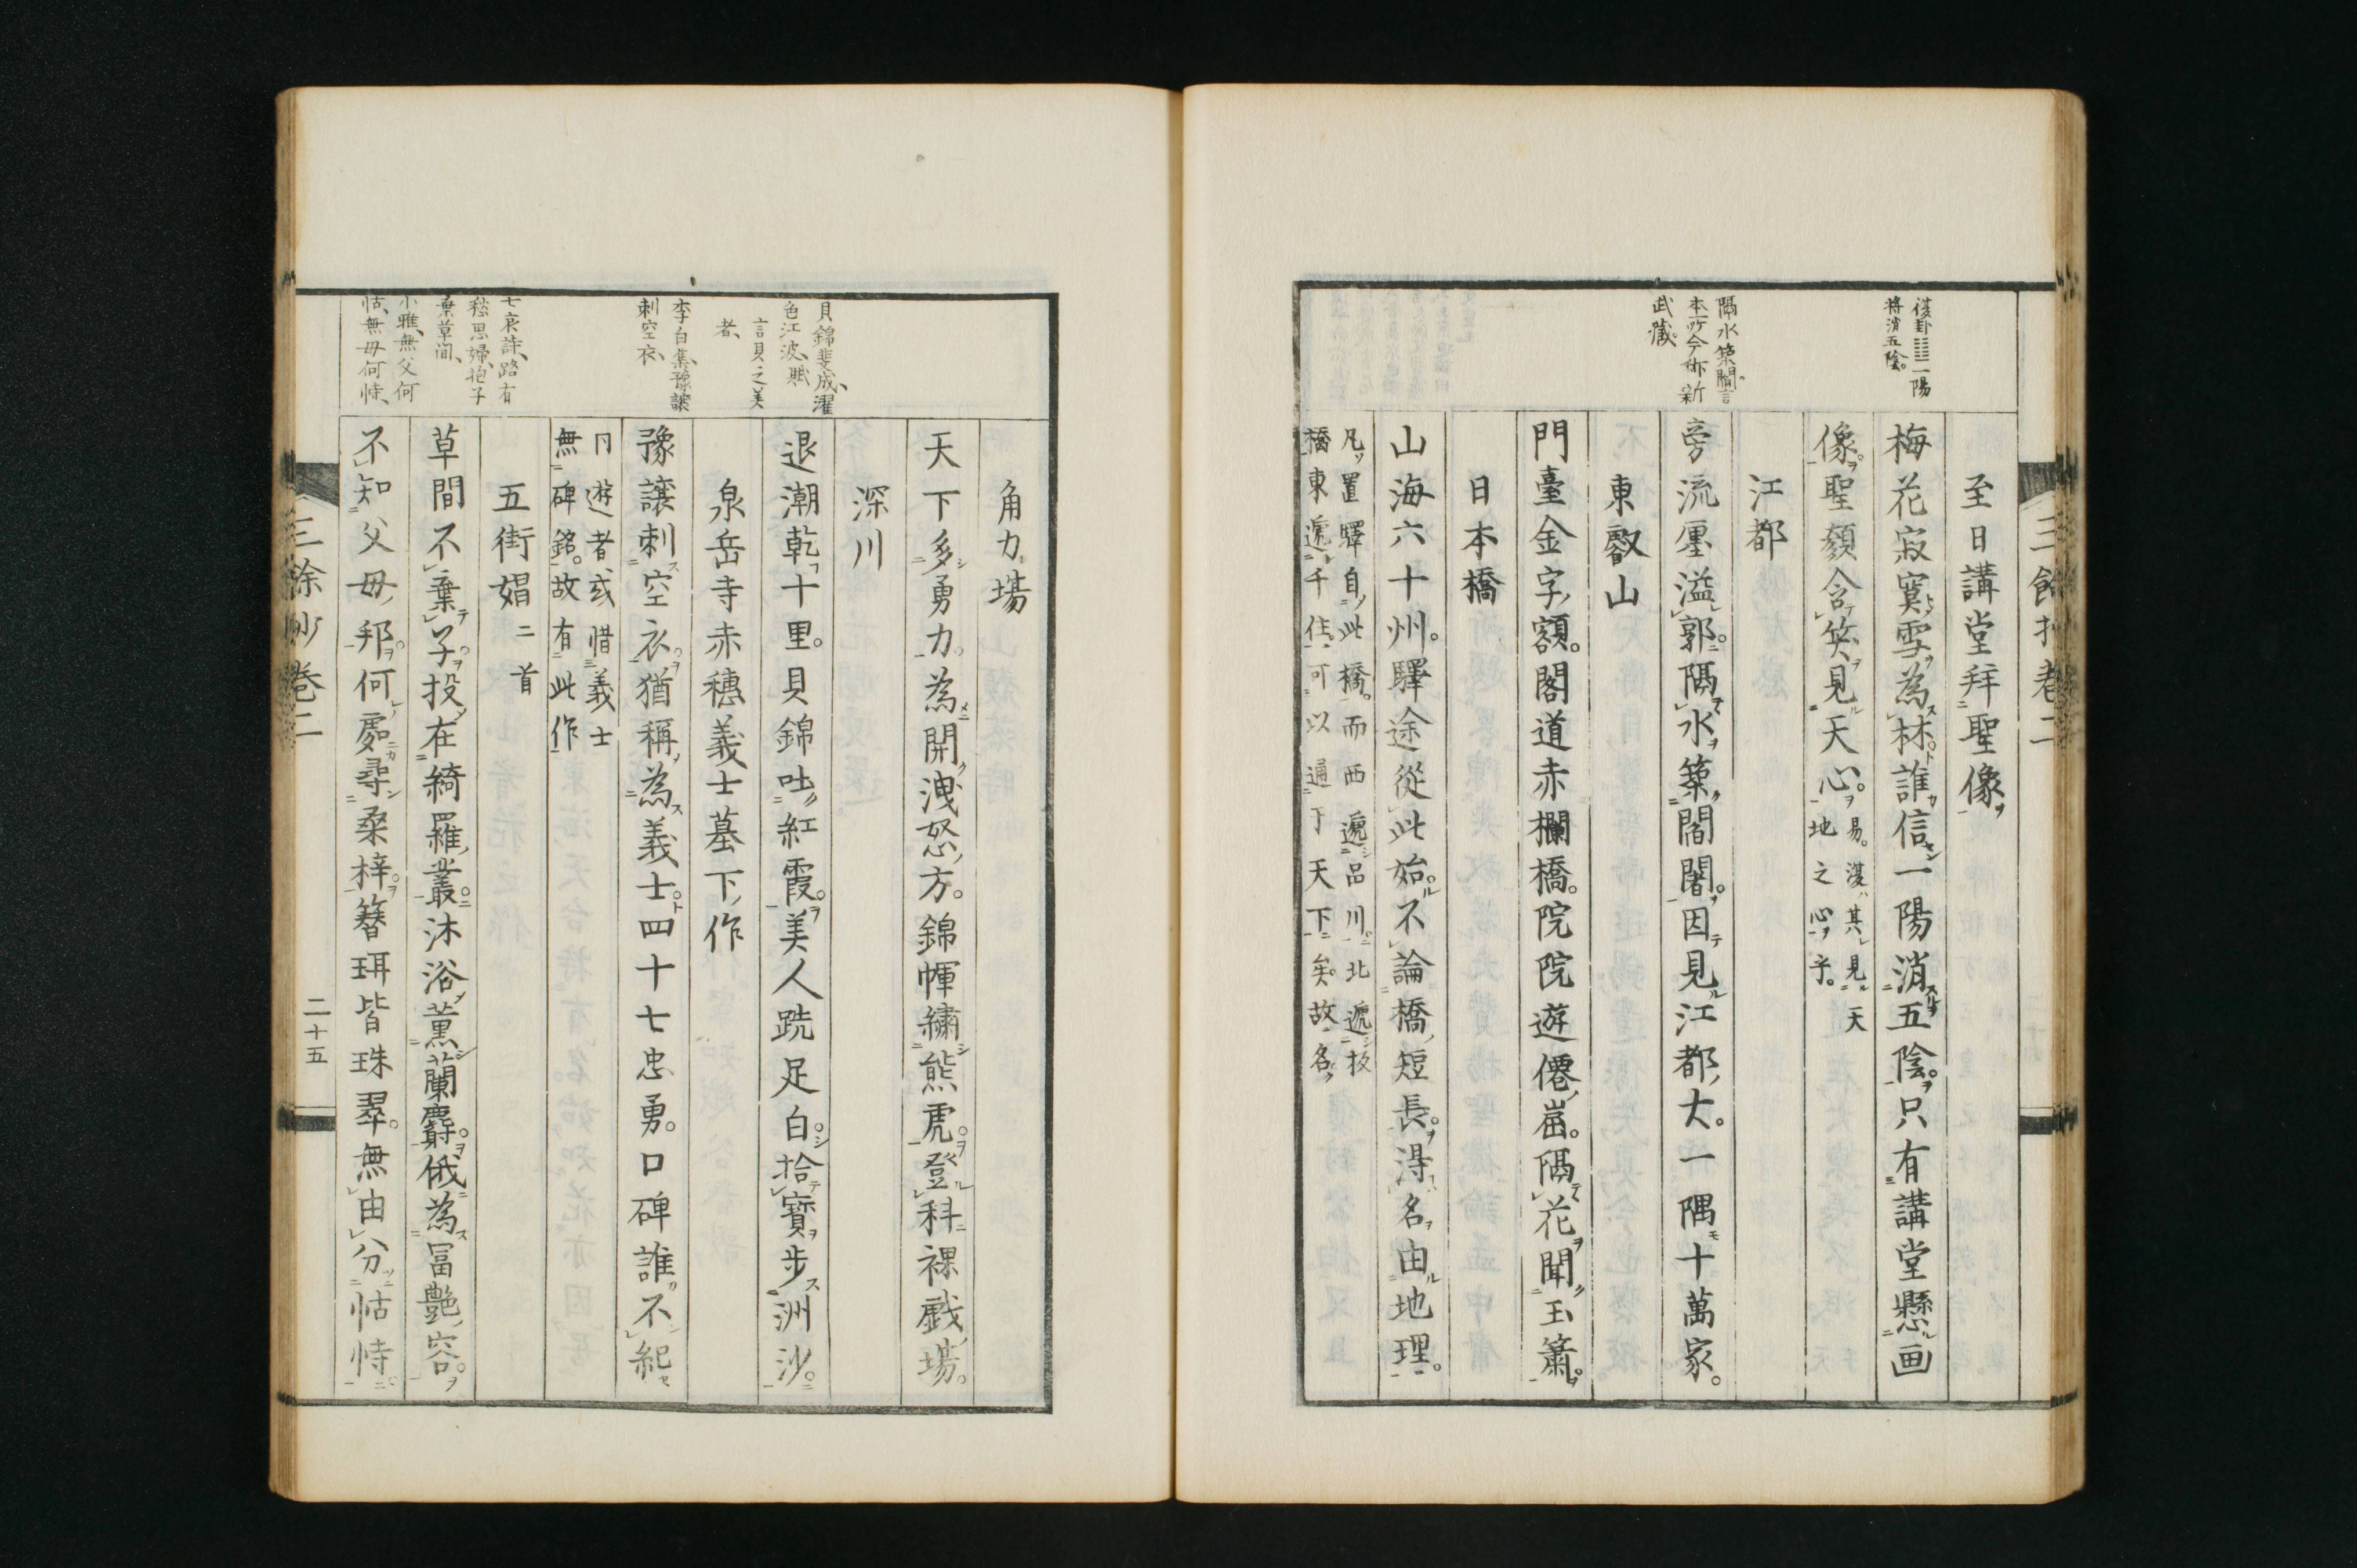 三餘抄卷二
至日講堂拜聖像
復卦䷗一陽
將消五陰
梅花寂寞雪為林誰信一陽消五陰只有講堂懸画
像聖顏含笑見天心易復其見天
地之心乎
江都
隅水築闍言
本所今称新
武藏
旁流廛溢郭隅水築闍闍因見江都大一隅十萬家
東叡山
門臺金字額閣道赤欄橋院院遊僊崫隔花聞玉簫
日本橋
山海六十州驛途從此始不論橋短長得名由地理
凡置驛自此橋而西遞品川北遞板
橋東遞千住可以通于天下矣故名
角力場
天下多勇力為開洩怒方錦幝繡熊虎登科裸戲場
深川
貝錦斐成濯
色江波賦
言貝之美
者
退潮乾十里貝錦吐紅霞美人跣足白拾寶步洲沙
泉岳寺赤穗義士墓下作
李白集豫讓
刺空衣
豫讓刺空衣猶稱為義士四十七忠勇口碑誰不紀
同遊者或惜義士
無碑銘故有此作
五街娼二首
七哀詩路有
愁思婦抱子
棄草間
草間不棄子投在綺羅叢沐浴薰蘭麝俄為冨艷容
小雅無父何
怙無母何恃
不知父毋邦何處尋桑梓簪珥皆珠翠無由分怙恃
三餘抄卷二
二十五